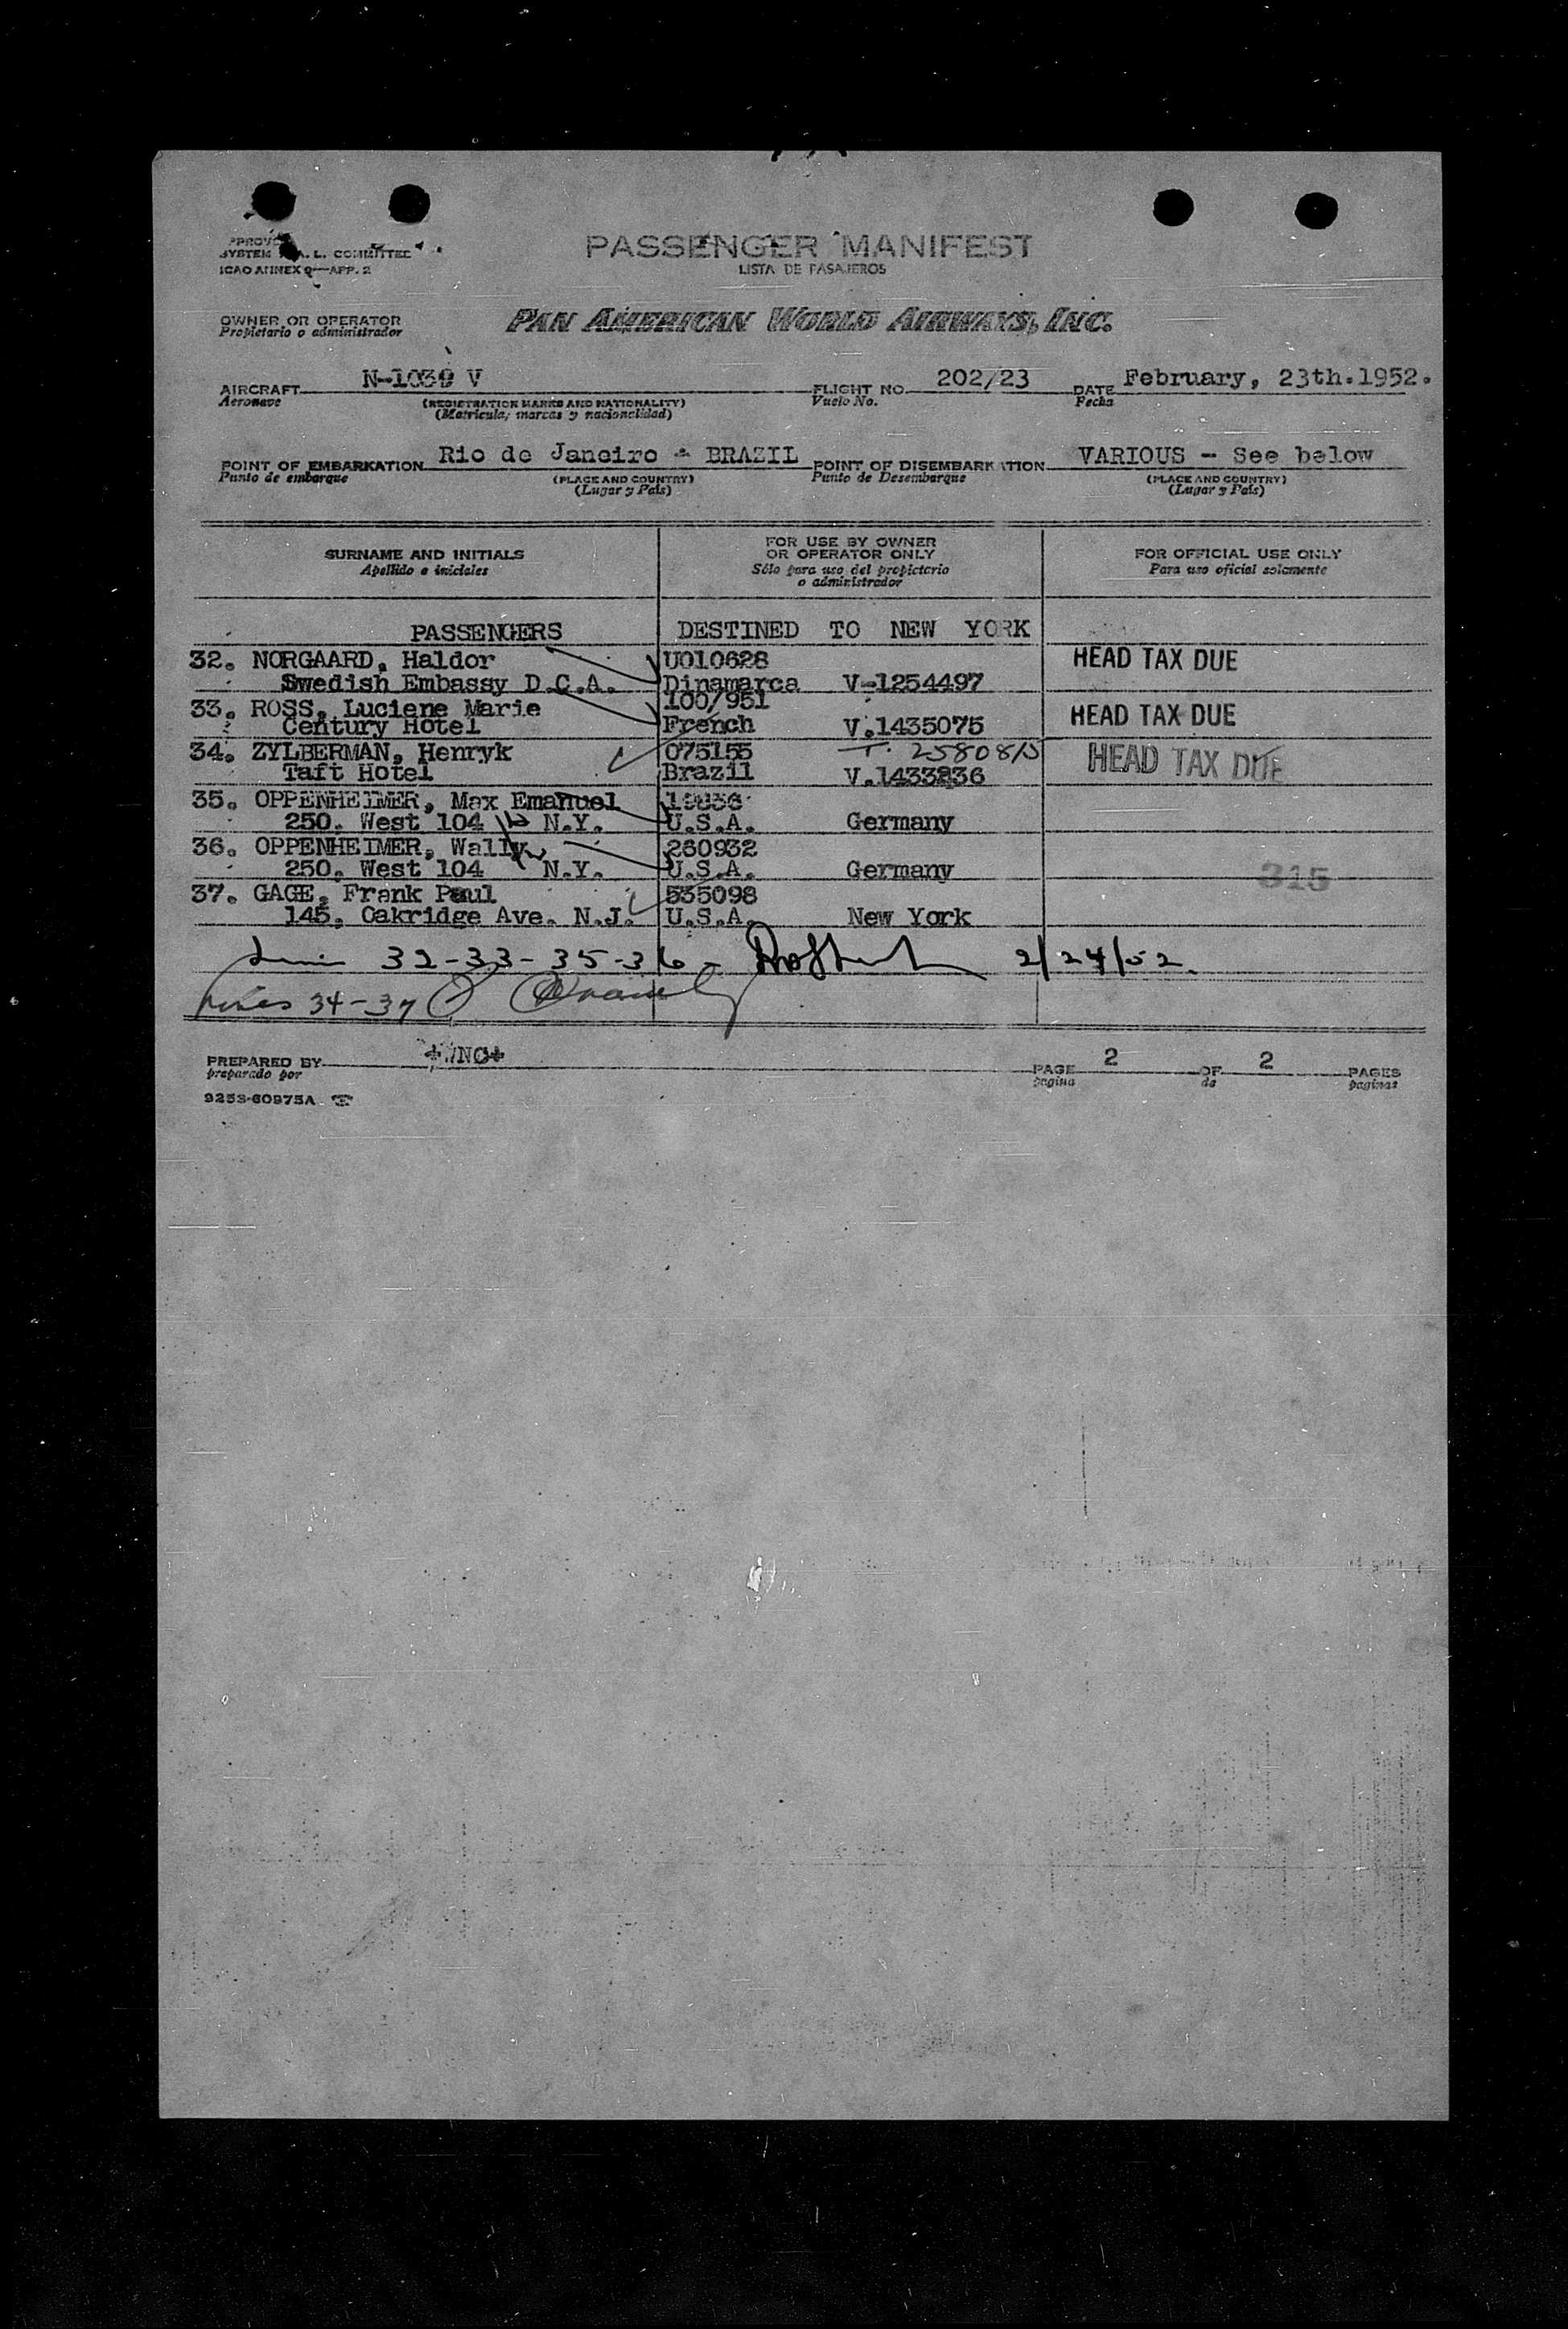 PASSENGER MANIFEST
LISTA DE PASAJEROS
SYSTEM A. L. COMMITTEE
ICAO ANNEX 9—APP. 2
OWNER OR OPERATOR
Propietario o administrador
PAN AMERICAN WORLD AIRWAYS, INC.
AIRCRAFT N-1039 V FLIGHT NO. 202/23 DATE February, 23th.1952.
Aeronave (REGISTRATION MARKS AND NATIONALITY) Vuelo No. Fecha
(Matricula, marcas y nacionalidad)
POINT OF EMBARKATION Rio de Janeiro - BRAZIL POINT OF DISEMBARKATION VARIOUS - See below
Punto de embarque (PLACE AND COUNTRY) Punto de Desembarque (PLACE AND COUNTRY)
(Lugar y País) (Lugar y País)
SURNAME AND INITIALS
Apellido e iniciales
FOR USE BY OWNER
OR OPERATOR ONLY
Sólo para uso del propietario
o administrador
FOR OFFICIAL USE ONLY
Para uso oficial solamente
PASSENGERS DESTINED TO NEW YORK
32. NORGAARD, Haldor U010628 HEAD TAX DUE
Swedish Embassy D.C.A. Dinamarca V-1254497
33. ROSS, Luciene Marie 100/951 HEAD TAX DUE
Century Hotel French V.1435075
34. ZYLBERMAN, Henryk 075155 HEAD TAX DUE
Taft Hotel Brazil V.1433836
35. OPPENHEIMER, Max Emanuel
250. West 104 N.Y. U.S.A. Germany
36. OPPENHEIMER, Wally 260932
250. West 104 N.Y. U.S.A. Germany
315
37. GAGE, Frank Paul 535098
145. Oakridge Ave. N.J. U.S.A. New York
32-33-35-36 2/24/52
34-37
PREPARED BY PAGE 2 OF 2 PAGES
preparado por pagina de paginas
9253-60975A